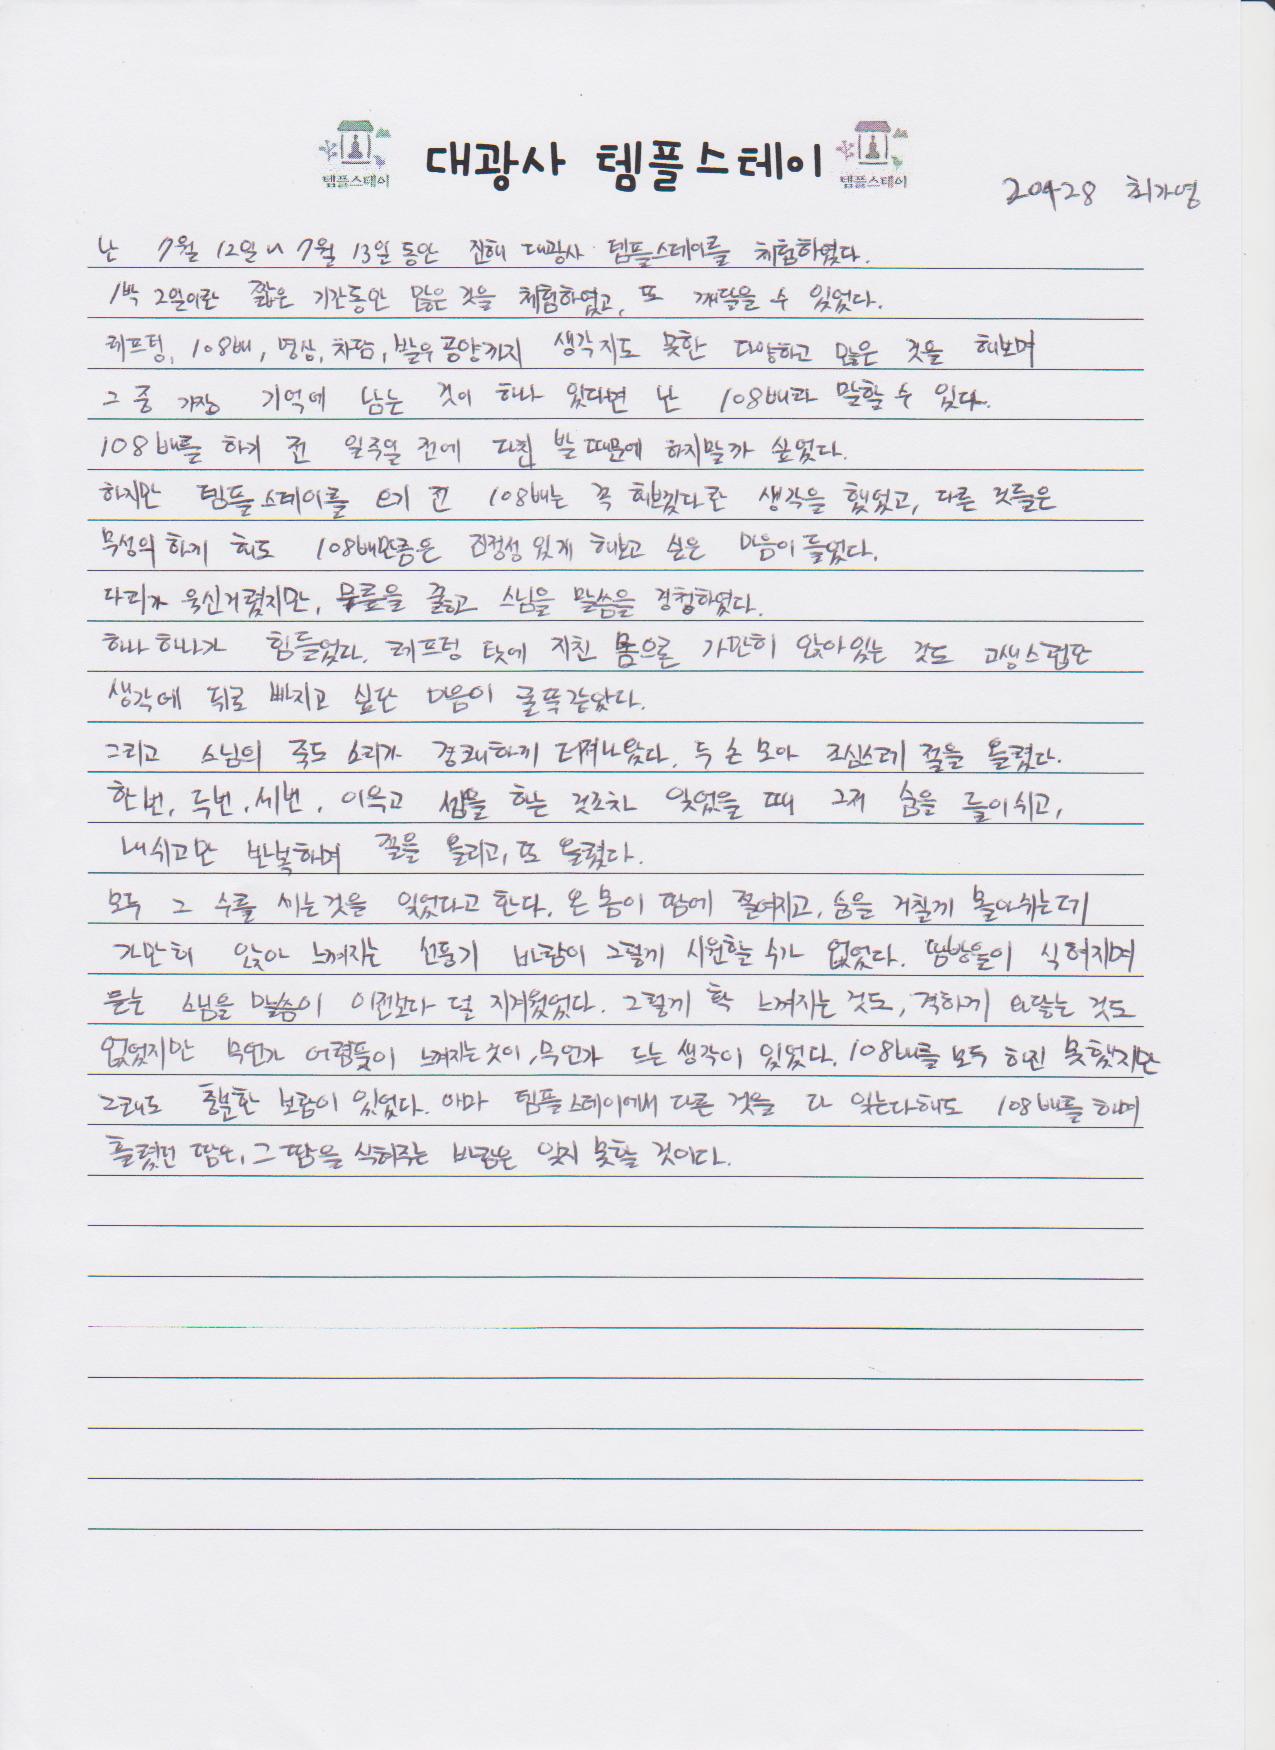 템플스테이
대광사 템플스테이
템플스테이
20428 최가영
난 7월 12일~7월 13일 동안 진해 대광사 템플스테이를 체험하였다.
1박 2일이란 짧은 기간동안 많은 것을 체험하였고, 또 깨달을 수 있었다.
레프팅, 108배, 명상, 차담, 발우공양까지 생각지도 못한 다양하고 많은 것을 해보며
그 중 가장 기억에 남는 것이 하나 있다면 난 108배라 말할 수 있다.
108배를 하기 전 일주일 전에 다친 발 때문에 하지말까 싶었다.
하지만 템플스테이를 오기 전 108배는 꼭 해보겠다란 생각을 했었고, 다른 것들은
무성의 하게 해도 108배만큼은 진정성 있게 해보고 싶은 마음이 들었다.
다리가 욱신거렸지만, 무릎을 꿇고 스님을 말씀을 경청하였다.
하나 하나가 힘들었다. 레프팅 탓에 지친 몸으론 가만히 앉아있는 것도 고생스럽단
생각에 뒤로 빠지고 싶단 마음이 굴뚝같았다.
그리고 스님의 죽도 소리가 경쾌하게 터져나왔다. 두 손 모아 조심스레 절을 올렸다.
한번, 두번, 세번, 이윽고 셈을 하는 것조차 잊었을 때 그저 숨을 들이쉬고,
내쉬고만 반복하며 절을 올리고, 또 올렸다.
모두 그 수를 세는것을 잊었다고 한다. 온 몸이 땀에 절여지고, 숨을 거칠게 몰아쉬는데
가만히 앉아 느껴지는 선풍기 바람이 그렇게 시원할 수가 없었다. 땀방울이 식혀지며
듣는 스님을 말씀이 이전보다 덜 지겨웠었다. 그렇게 확 느껴지는 것도, 격하게 와닿는 것도
없었지만 무언가 어렴풋이 느껴지는 것이, 무언가 드는 생각이 있었다. 108배를 모두 하진 못했지만
그래도 충분한 보람이 있었다. 아마 템플스테이에서 다른 것을 다 잊는다해도 108배를 하며
흘렸던 땀은, 그 땀을 식혀주는 바람은 잊지 못할 것이다.